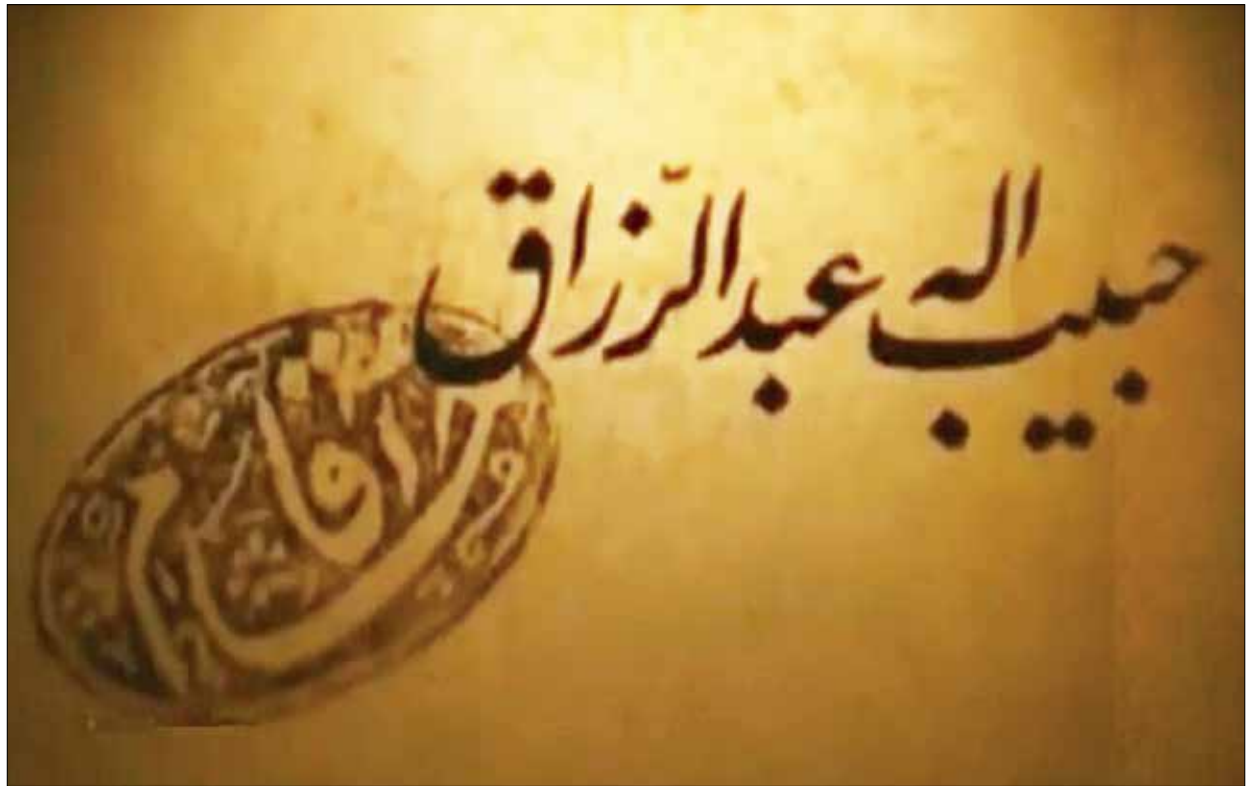 حبیب اله عبدالرّزاق